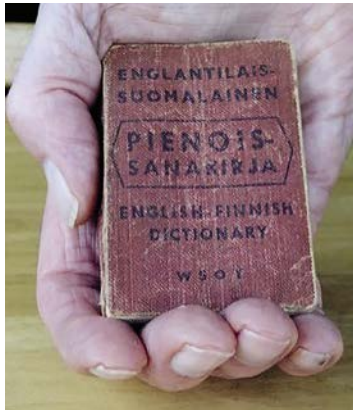 ENGLANTILAIS-
SUOMALAINEN
PIENOIS-
SANAKIRJA
ENGLISH-FINNISH
DICTIONARY
WSOY